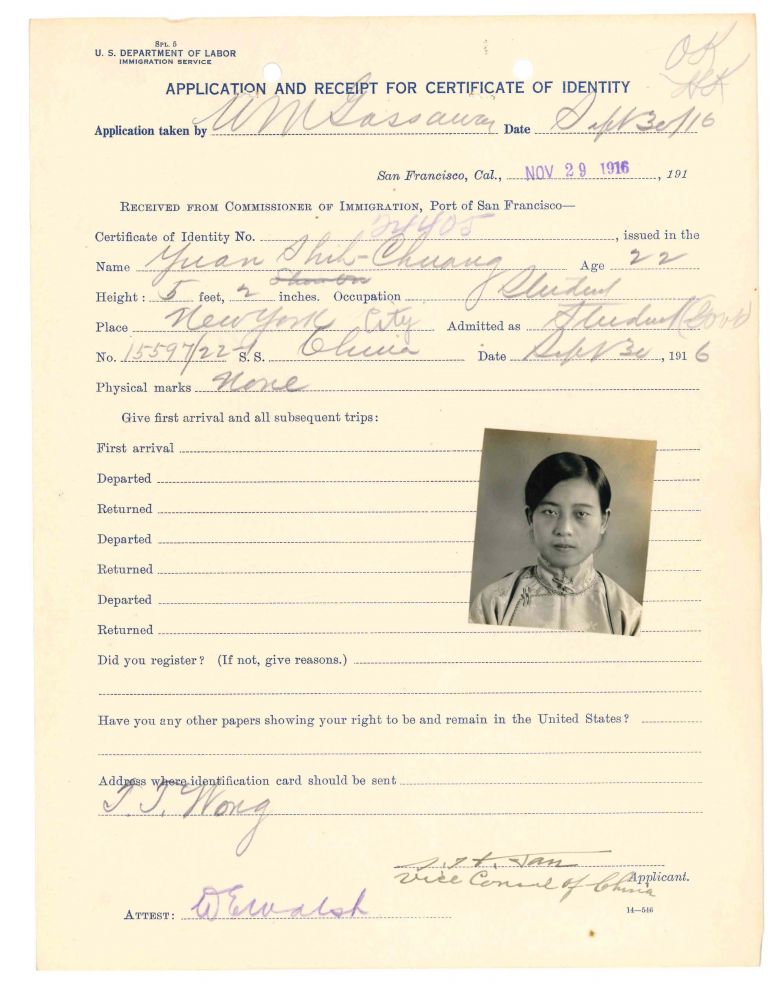 SPL. 5
U. S. DEPARTMENT OF LABOR
IMMIGRATION SERVICE
OK
APPLICATION AND RECEIPT FOR CERTIFICATE OF IDENTITY
Application taken by WM Gassaway Date Sept 30/16
San Francisco, Cal., NOV 29 1916, 191
RECEIVED FROM COMMISSIONER OF IMMIGRATION, Port of San Francisco—
Certificate of Identity No. 24405, issued in the
Name Yuan Shih-Chuang Age 22
Height: 5 feet, 2 inches. Occupation Student
Place New York City Admitted as Student (Govt)
No. 15597/22-1 S. S. China Date Sept 30, 1916
Physical marks None
Give first arrival and all subsequent trips:
First arrival
Departed
Returned
Departed
Returned
Departed
Returned
Did you register? (If not, give reasons.)
Have you any other papers showing your right to be and remain in the United States?
Address where identification card should be sent
T. T. Wong
Tan
Vice Consul of China Applicant.
ATTEST: W E Walsh
14—546